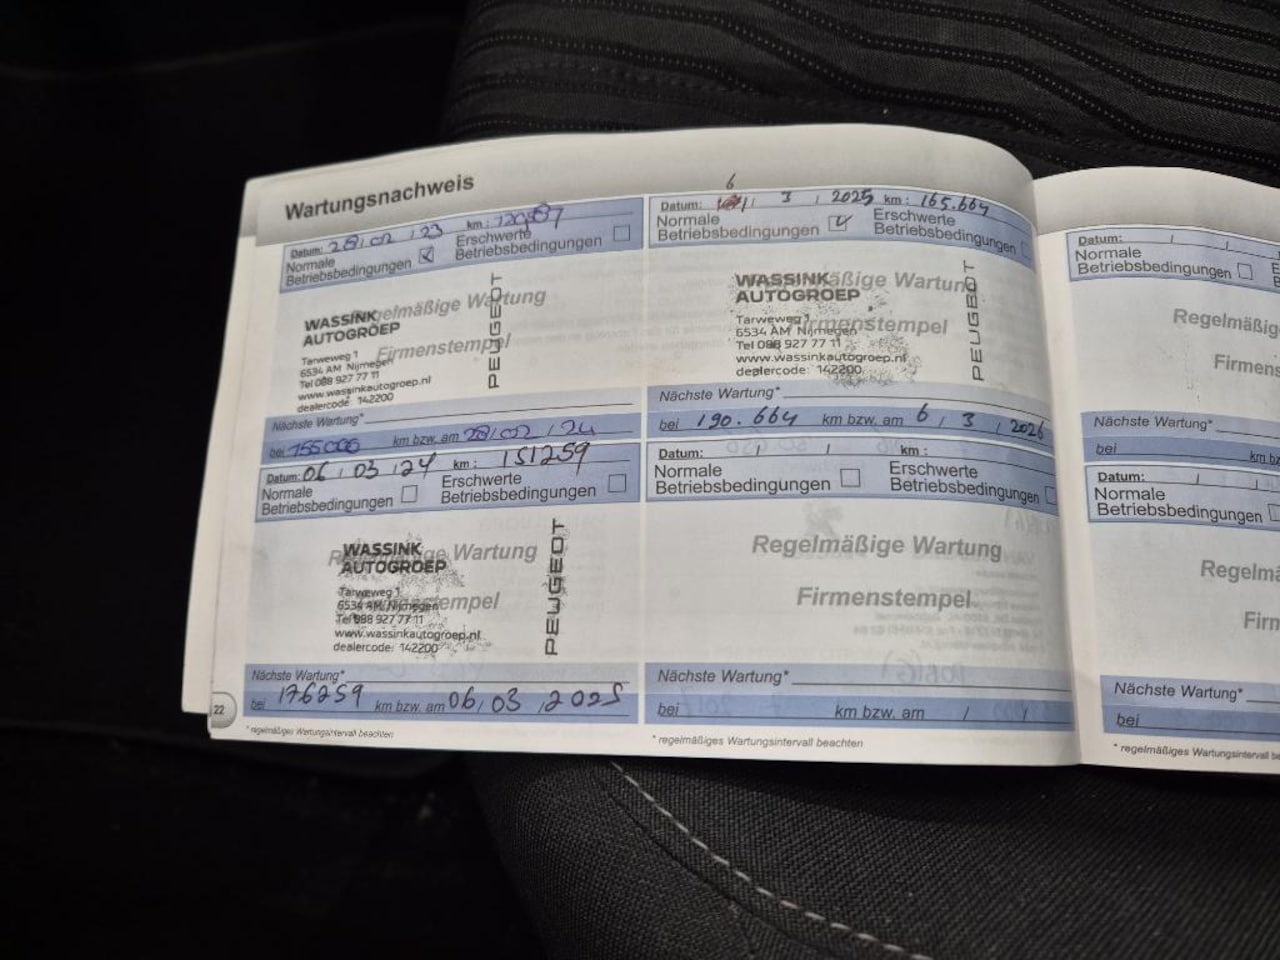 Wartungsnachweis
Datum: 28 / 02 / 23 km:
Normale Betriebsbedingungen Erschwerte Betriebsbedingungen
Regelmäßige Wartung
Firmenstempel
WASSINK
AUTOGROEP
Tarweweg 1
6534 AM Nijmegen
Tel 088 927 77 11
www.wassinkautogroep.nl
dealercode: 142200
PEUGEOT
Nächste Wartung*
bei 155000 km bzw. am 28/02/24
Datum: 06 / 03 / 24 km: 151259
Normale Betriebsbedingungen Erschwerte Betriebsbedingungen
Regelmäßige Wartung
Firmenstempel
WASSINK
AUTOGROEP
Tarweweg 1
6534 AM Nijmegen
Tel 088 927 77 11
www.wassinkautogroep.nl
dealercode: 142200
PEUGEOT
Nächste Wartung*
bei 176259 km bzw. am 06/03/2025
22
* regelmäßiges Wartungsintervall beachten
6
Datum: / 3 / 2025 km: 165.664
Normale Betriebsbedingungen Erschwerte Betriebsbedingungen
Regelmäßige Wartung
Firmenstempel
WASSINK
AUTOGROEP
Tarweweg 1
6534 AM Nijmegen
Tel 088 927 77 11
www.wassinkautogroep.nl
dealercode: 142200
PEUGEOT
Nächste Wartung*
bei 190.664 km bzw. am 6 / 3 / 2026
Datum: / / km:
Normale Betriebsbedingungen Erschwerte Betriebsbedingungen
Regelmäßige Wartung
Firmenstempel
Nächste Wartung*
bei km bzw. am / /
* regelmäßiges Wartungsintervall beachten
Datum: / /
Normale Betriebsbedingungen
Nächste Wartung*
bei
Datum: /
Normale Betriebsbedingungen
Nächste Wartung*
bei
* regelmäßiges Wartungsintervall